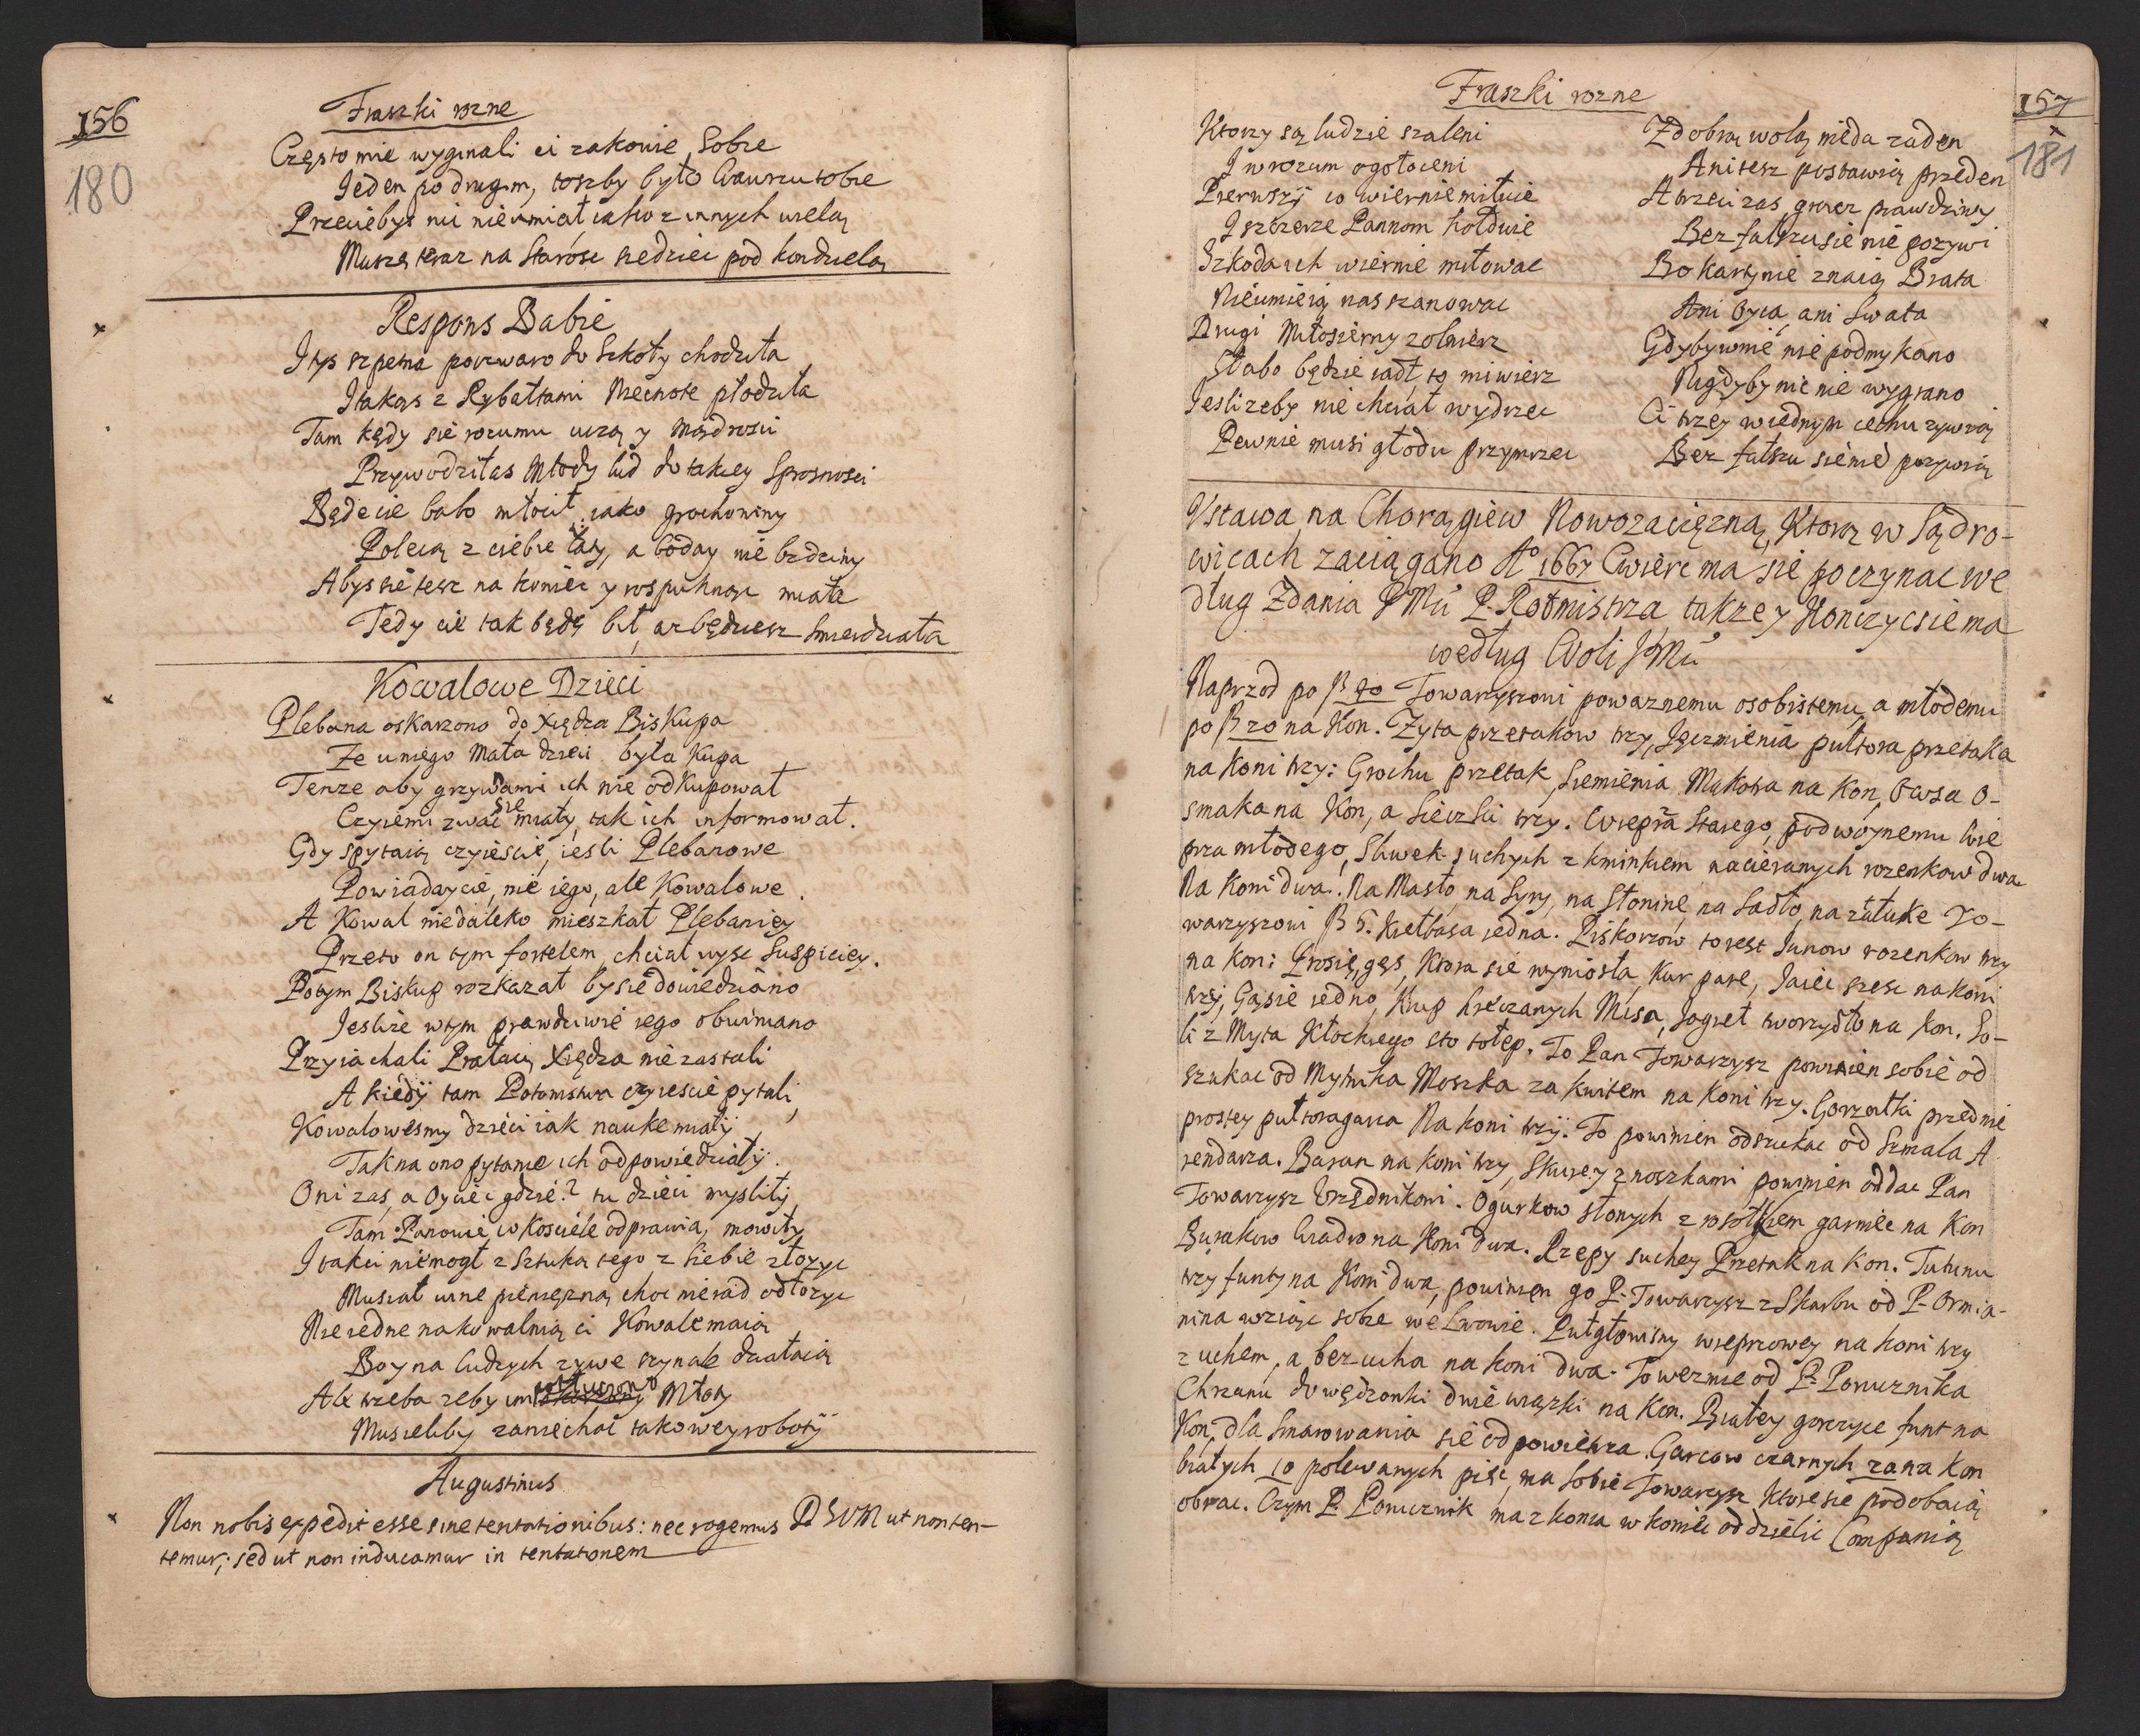 156
180
Fraszki rozne
Często mie wyginali ci zakowie Sobie
Jeden po drugim, toszby było Wawrzu tobie
Przeciebys nic nieumiał iako z innych wielą
Muszę teraz na Starosc siedziec pod kondzielą
Respons Babie
I tys szpetna poczwaro do Szkoły chodziła
I takąs z Rybałtami Niecnote płodziła
Tam kędy sie rozumu uczą y Mądrosci
Przywodziłas Młody lud do takiey Sprosnosci
Będe cie babo młocił, iako grochowiny
Polecą z ciebie łaty, a boday nie bzdziny
Abys sie tesz na koniec y rospuknąc miała
Tedy cie tak będę bił, az będziesz Smierdziała
Kowalowe Dzieci
Plebana oskarzono do Xiędza Biskupa
Ze u niego Mała dzieci była Kupa
Tenze aby grzywnami ich nie odkupował
Czyiemi zwac sie miały, tak ich informował.
Gdy spytaią czyiescie, iesli Plebanowe
Powiadaycie, nie iego, ale Kowalowe.
A Kowal niedaleko mieszkał Plebaniey
Przeto on tym fortelem, chciał uysc Suspiciey.
Potym Biskup rozkazał by sie dowiedziano
Jeslize w tym prawdziwie iego obwiniano
Przyiachali Prałaci, Xiędza nie zastali
A kiedy tam Potomstwa czyiescie pytali,
Kowalowesmy dzieci iak nauke miały
Tak na ono pytanie ich odpowiedziały.
Oni zas, a Ociec gdzie? tu dzieci myslity
Tam Panowie, w Kosciele odprawia, mowiły
I takci niemogł z Sztuką tego z Siebie złozyc
Musiał wine pieniężną choc nierad odłozyc
Nie iedne na kowalnią ci Kowale maią
Bo y na ludzych zywe szynale działaią
Ale trzeba zeby im potłuczono Młoty
Musieliby zaniechac takowey roboty
Augustinus
Non nobis expedit esse sine tentationibus: nec rogemus DEVM ut non ten-
temur; sed ut non inducamur in tentationem
Fraszki rozne
157
181
Ktorzy są ludzie szaleni
I w rozum ogołoceni
Pierwszy co wiernie miłuie
I szczerze Pannom hołduie
Szkoda ich wiernie miłowac
Nieumieią nas szanowac
Drugi Miłosierny zołnierz
Słabo będzie iadł, to mi wierz
Jeslizeby nie chciał wydrzec
Pewnie musi głodu przymrzec
Z dobrą wolą nieda zaden
Ani tesz postawią przeden
A trzeci zas gracz prawdziwy
Bez fałszu sie nie pozywi
Bo Karty nie znaią Brata
Ani Oyca, ani Swata
Gdyby w nie nie podmykano
Nigdyby nic nie wygrano
Ci trzey w iednym cechu zywią
Bez fałszu sie nie pozywią
Vstawa na Chorągiew Nowozaciężną, Ktorą w Sądro-
wicach zaciągano Aº 1667 Cwierc ma sie poczynac we
dług Zdania JMci P. Rotmistrza, także y Konczyc sie ma
według Woli JMci
Naprzod po 40 Towarzyszowi powaznemu osobistemu, a młodemu
po 20 na Kon. Zyta przetakow trzy, Jęczmienia pułtora przetaka
na Koni trzy: Grochu przetak, Siemienia Makotra na Kon, Owsa o-
smaka na Kon, a Sieczki trzy. Wieprza Starego, podwoynemu Wie
prza młodego, Sliwek suchych z kminkiem nacieranych rozenkow dwa
Na Koni dwa. Na Masło, na Syry, na Słonine, na Sadło, na ztuke To-
warzyszowi 5. Kiełbasa iedna. Piskorzow to iest Junow rozenkow trzy
na Kon: Prosię, gęs, Ktora sie wyniosła, Kur pare, Jaiec szesc na Koni
trzy, Gąsie iedno, Krup hreczanych Misa, Jagieł tworzydło na Kon. So-
li z Myta Kłockiego sto tołep. To Pan Towarzysz powinien sobie od
szukac od Mytnika Moszka za kwitem na Koni trzy. Gorzałki przednie
prostey pułtoragarca Na koni trzy. To powinien odszukac od Szmala A
rendarza. Baran na koni trzy, Skure y z noszkami powinien oddac Pan
Towarzysz Urzędnikowi. Ogurkow słonych z rosołkiem garniec na Kon
Burakow Wiadro na Koni dwa. Rzepy suchey Przetak na Kon. Tutunu
trzy funty na Koni dwa, powinien go P. Towarzysz z Skarbu od P. Ormia-
nina wziąc sobie we Lwowie. Pułgłowizny wieprzowey na koni trzy
z uchem, a bez ucha na koni dwa. To wezmie od P. Porucznika
Chrzanu do wędzonki dwie wiązki na Kon. Białey gorczyce funt na
Kon, dla Smarowania sie od powietrza. Garcow czarnych 20 na Kon
białych 10 polewanych pięc, ma Sobie Towarzysz ktore sie podobaią
obrac. Czym P. Porucznik ma z konca w koniec oddzielic Companią